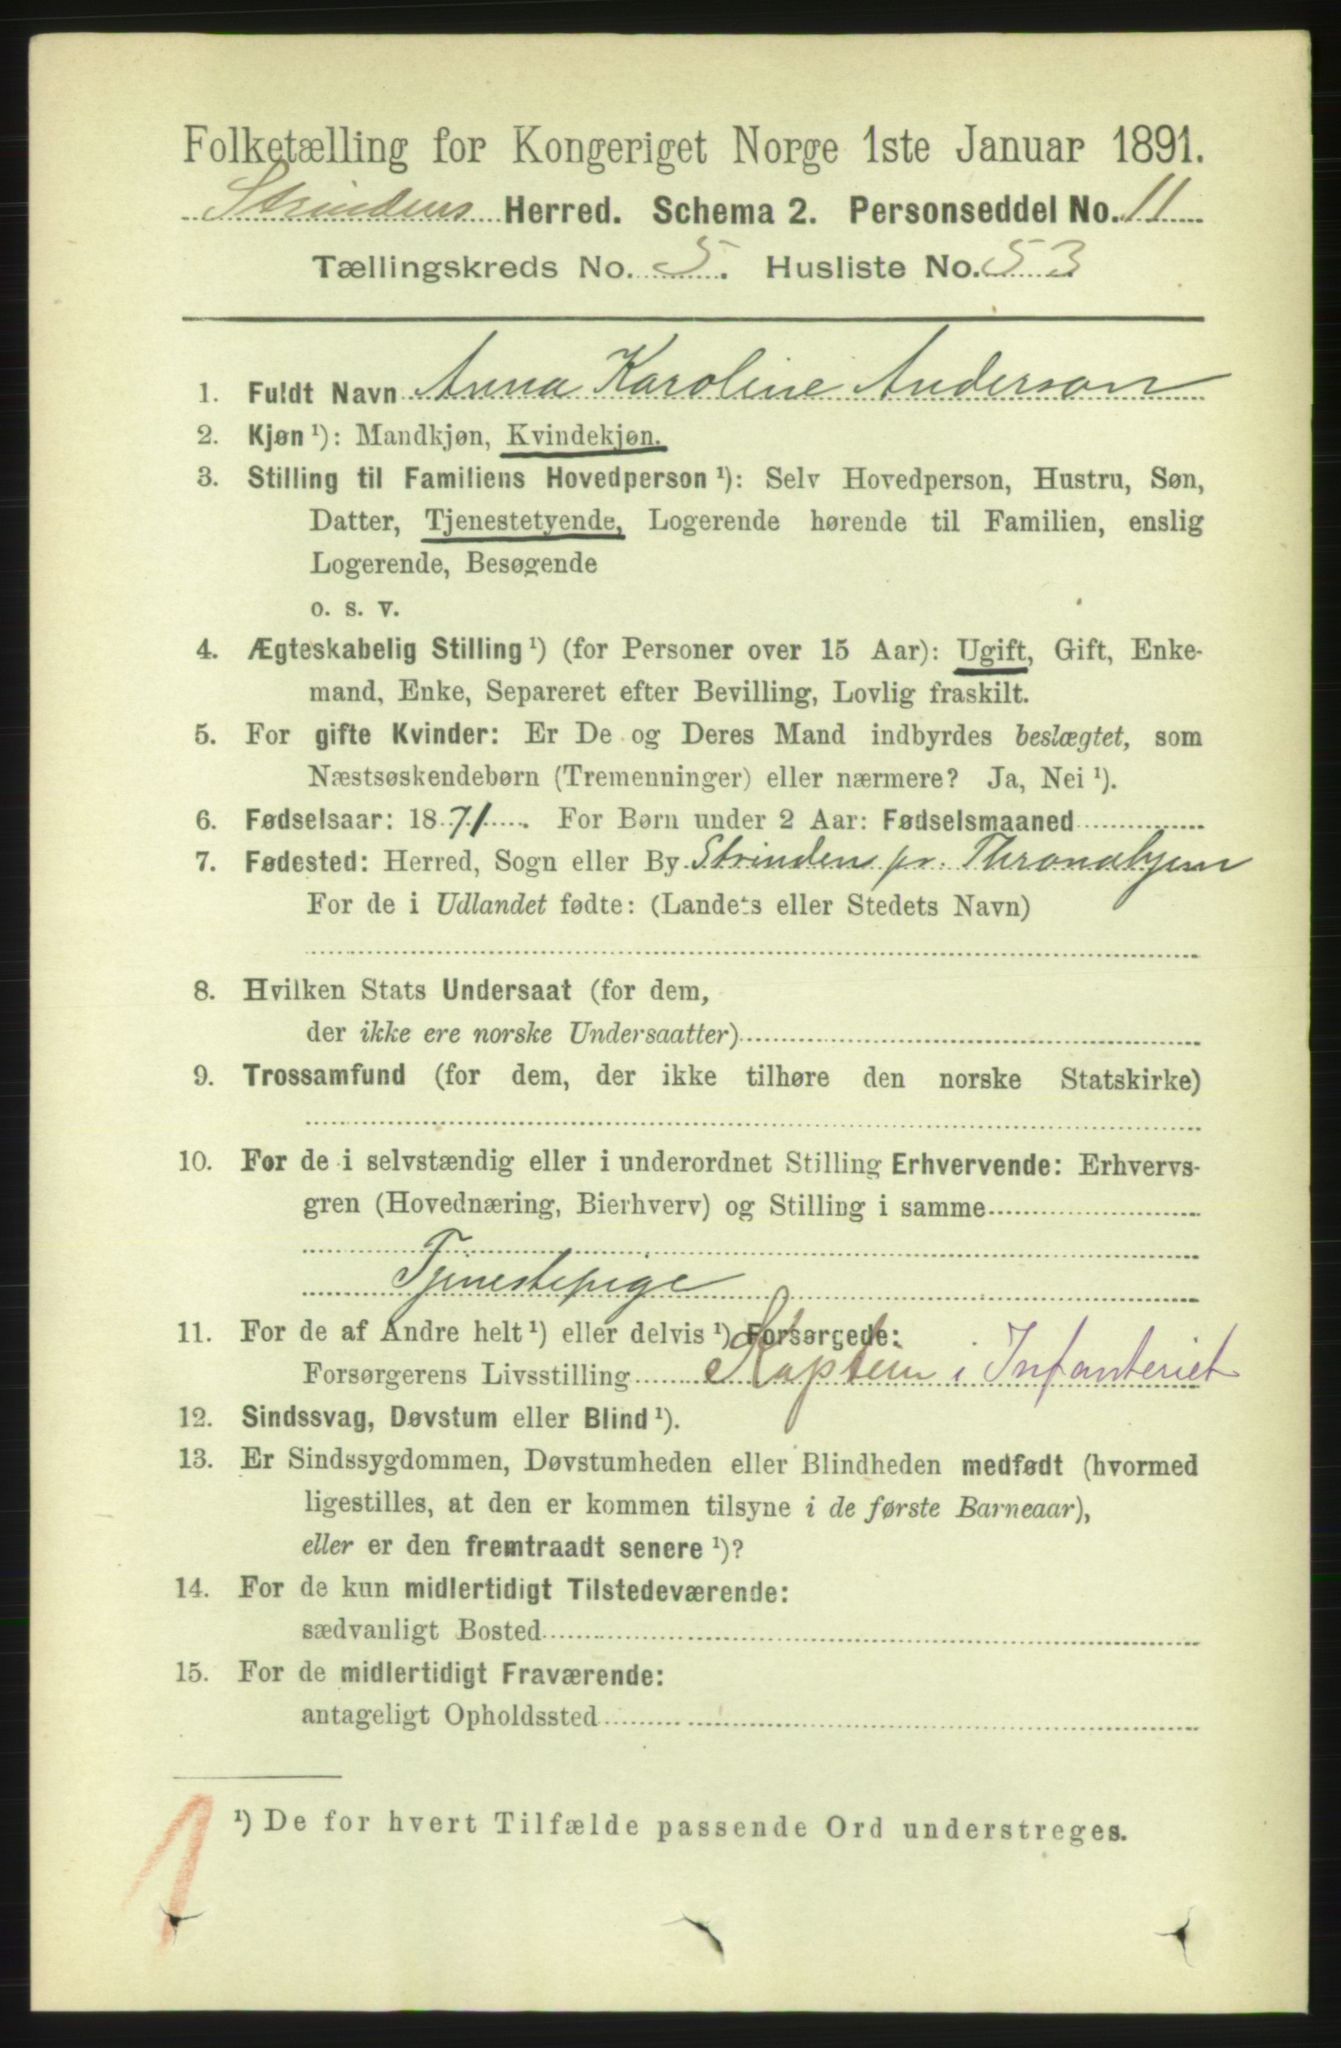 Folketælling for Kongeriget Norge 1ste Januar 1891.
Strindens Herred. Schema 2. Personseddel No. 11
Tællingskreds No. 5. Husliste No. 53
1. Fuldt Navn Anna Karoline Anderson
2. Kjøn ¹): Mandkjøn, Kvindekjøn.
3. Stilling til Familiens Hovedperson ¹): Selv Hovedperson, Hustru, Søn,
Datter, Tjenestetyende, Logerende hørende til Familien, enslig
Logerende, Besøgende
o. s. v.
4. Ægteskabelig Stilling ¹) (for Personer over 15 Aar): Ugift, Gift, Enke-
mand, Enke, Separeret efter Bevilling, Lovlig fraskilt.
5. For gifte Kvinder: Er De og Deres Mand indbyrdes beslægtet, som
Næstsøskendebørn (Tremenninger) eller nærmere? Ja, Nei ¹).
6. Fødselsaar: 1871. For Børn under 2 Aar: Fødselsmaaned
7. Fødested: Herred, Sogn eller By Strinden pr. Throndhjem
For de i Udlandet fødte: (Landets eller Stedets Navn)
8. Hvilken Stats Undersaat (for dem,
der ikke ere norske Undersaatter)
9. Trossamfund (for dem, der ikke tilhøre den norske Statskirke)
10. For de i selvstændig eller i underordnet Stilling Erhvervende: Erhvervs-
gren (Hovednæring, Bierhverv) og Stilling i samme
Tjenestepige
11. For de af Andre helt ¹) eller delvis ¹) Forsørgede:
Forsørgerens Livsstilling Kaptein i Infanteriet
12. Sindssvag, Døvstum eller Blind ¹).
13. Er Sindssygdommen, Døvstumheden eller Blindheden medfødt (hvormed
ligestilles, at den er kommen tilsyne i de første Barneaar),
eller er den fremtraadt senere ¹)?
14. For de kun midlertidigt Tilstedeværende:
sædvanligt Bosted
15. For de midlertidigt Fraværende:
antageligt Opholdssted
¹) De for hvert Tilfælde passende Ord understreges.
1